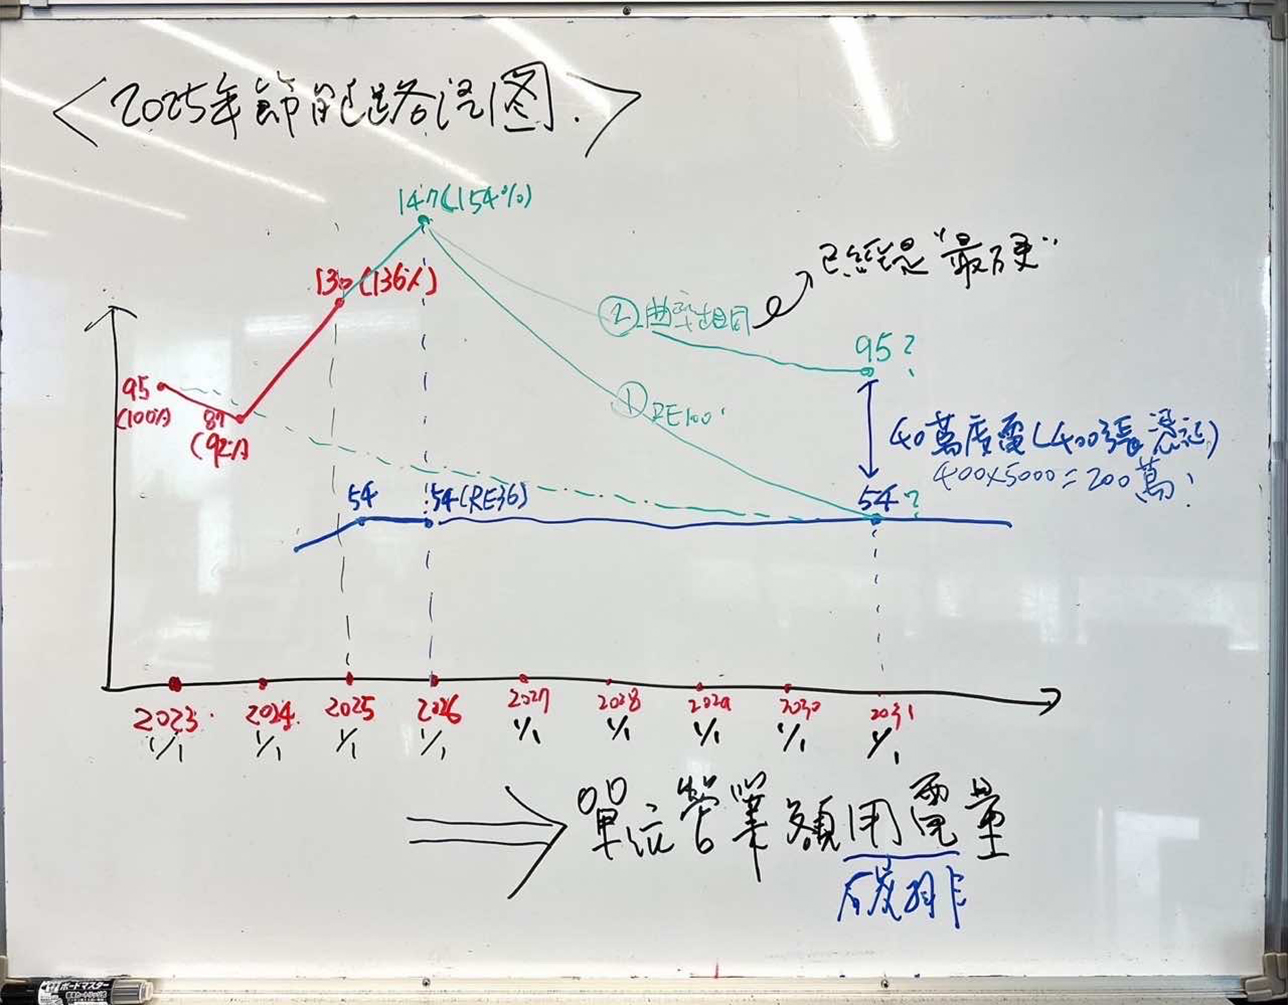 <2025年節能路徑图.>
147(154%)
130(136%)
已經是"最硬"
②曲率相同
95?
95
(100%)
87
(92%)
①RE100
40萬度電(400張憑証)
400x5000=200萬
54
54(RE36)
54?
2023 2024 2025 2026 2027 2028 2029 2030 2031
1/1 1/1 1/1 1/1 1/1 1/1 1/1 1/1 1/1
⇒ 單位營業額用電量
碳排
ボードマスター